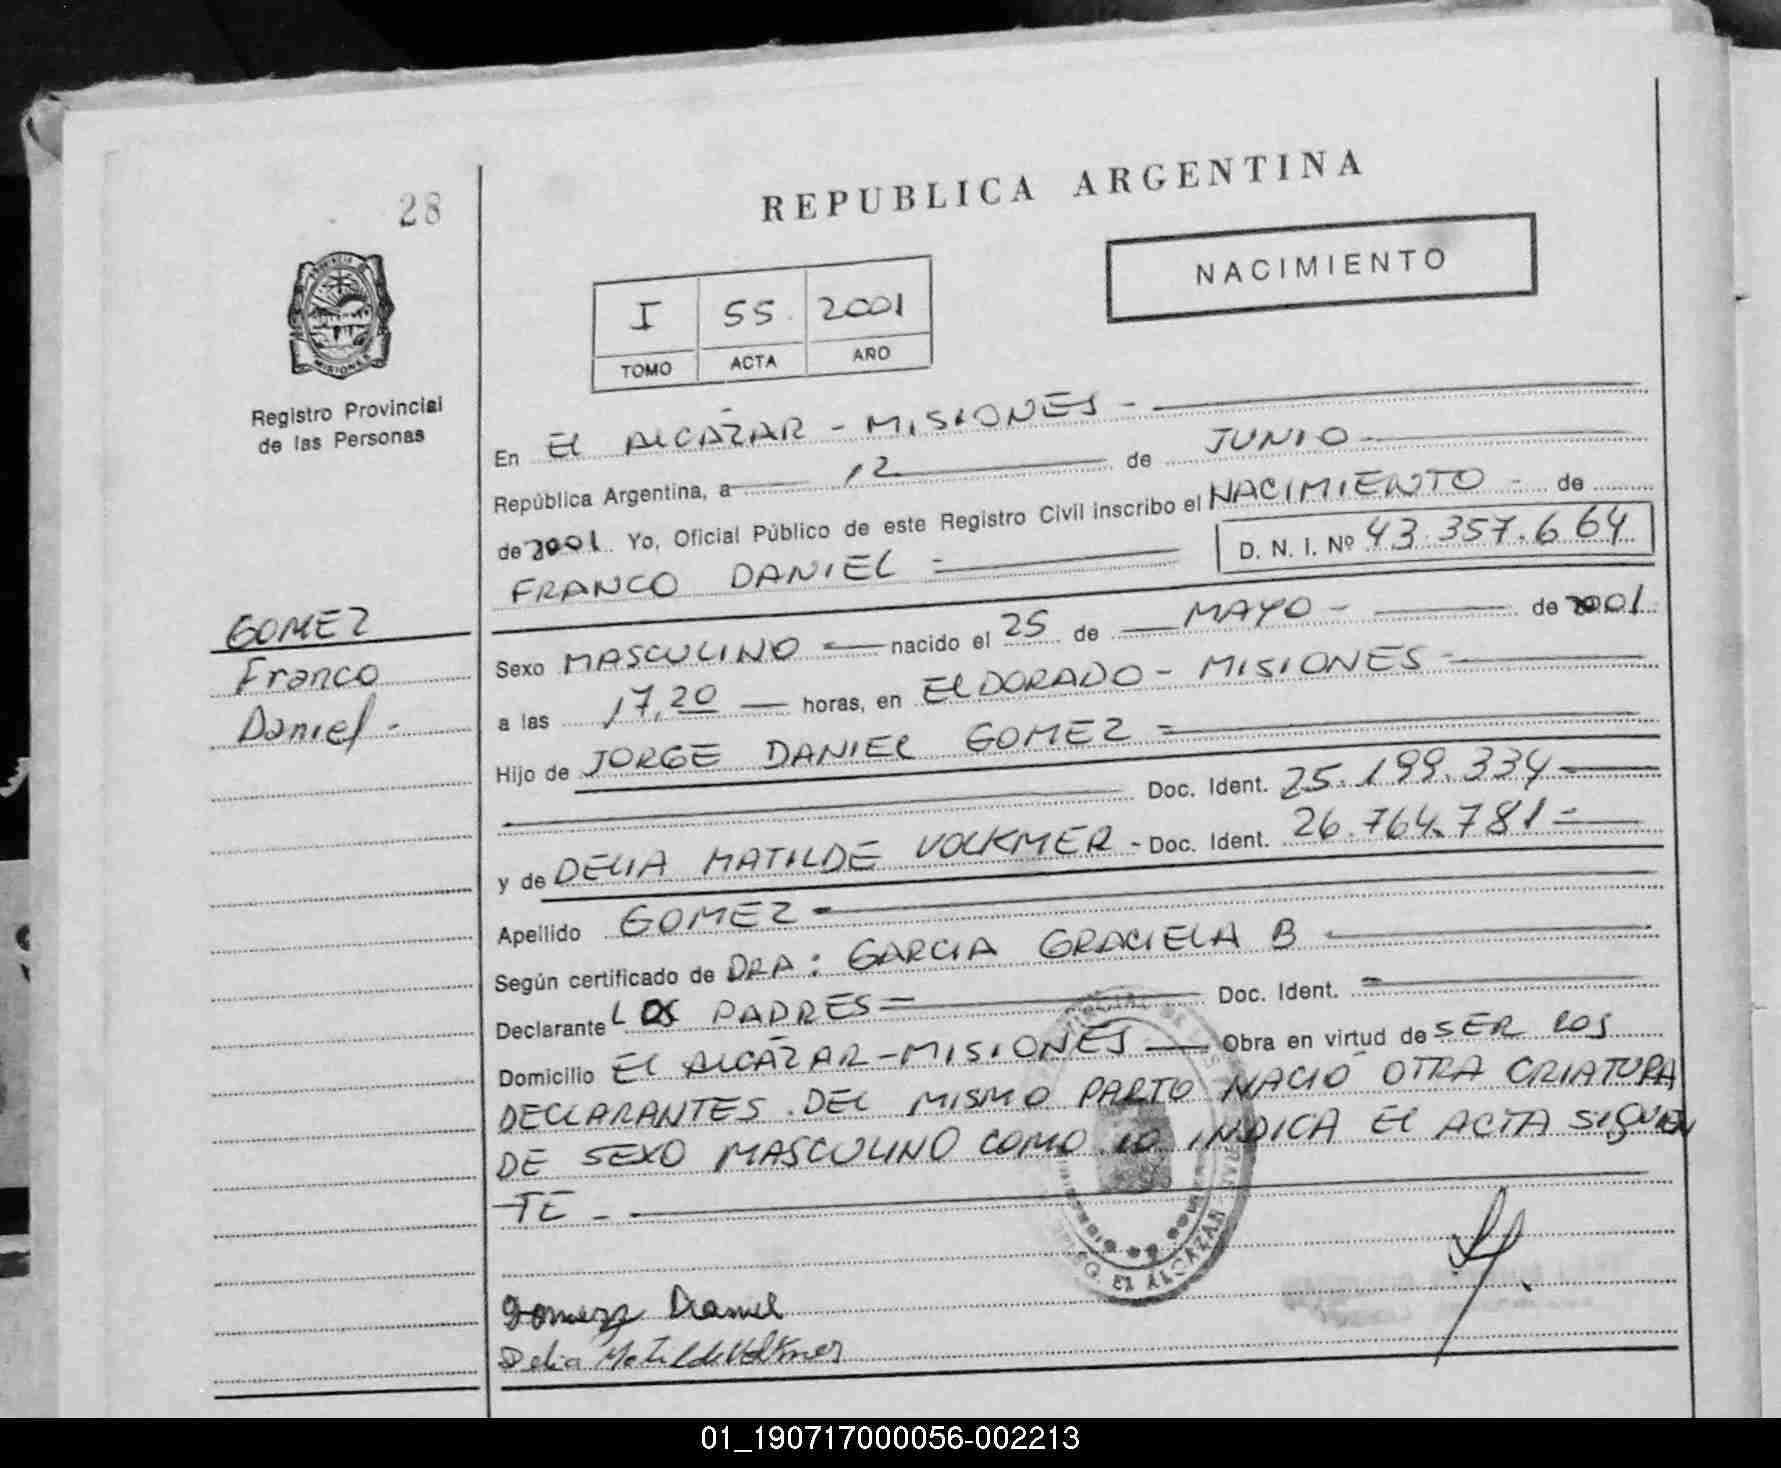 28
REPUBLICA ARGENTINA
NACIMIENTO
I 55 2001
TOMO ACTA AÑO
PROVINCIA DE
MISIONES
Registro Provincial
de las Personas
En El ALCAZAR - MISIONES -
República Argentina, a 12 de JUNIO
de 2001 Yo, Oficial Público de este Registro Civil inscribo el NACIMIENTO - de
FRANCO DANIEL = D. N. I. Nº 43.357.664
GOMEZ
Franco
Daniel -
Sexo MASCULINO nacido el 25 de MAYO - de 2001
a las 17,20 horas, en ElDORADO - MISIONES -
Hijo de JORGE DANIEL GOMEZ =
Doc. Ident. 25.199.334
y de DELIA MATILDE VOLKMER - Doc. Ident. 26.764.781 =
Apellido GOMEZ
Según certificado de DRA: GARCIA GRACIELA B
Declarante LOS PADRES = Doc. Ident.
Domicilio El ALCAZAR - MISIONES Obra en virtud de SER LOS
DECLARANTES. DEL MISMO PARTO NACIÓ OTRA CRIATURA
DE SEXO MASCULINO COMO LO INDICA El ACTA SIGUIEN
TE -
EL ALCAZAR
Gomez Daniel
Delia Matilde Volkmer
01_190717000056-002213